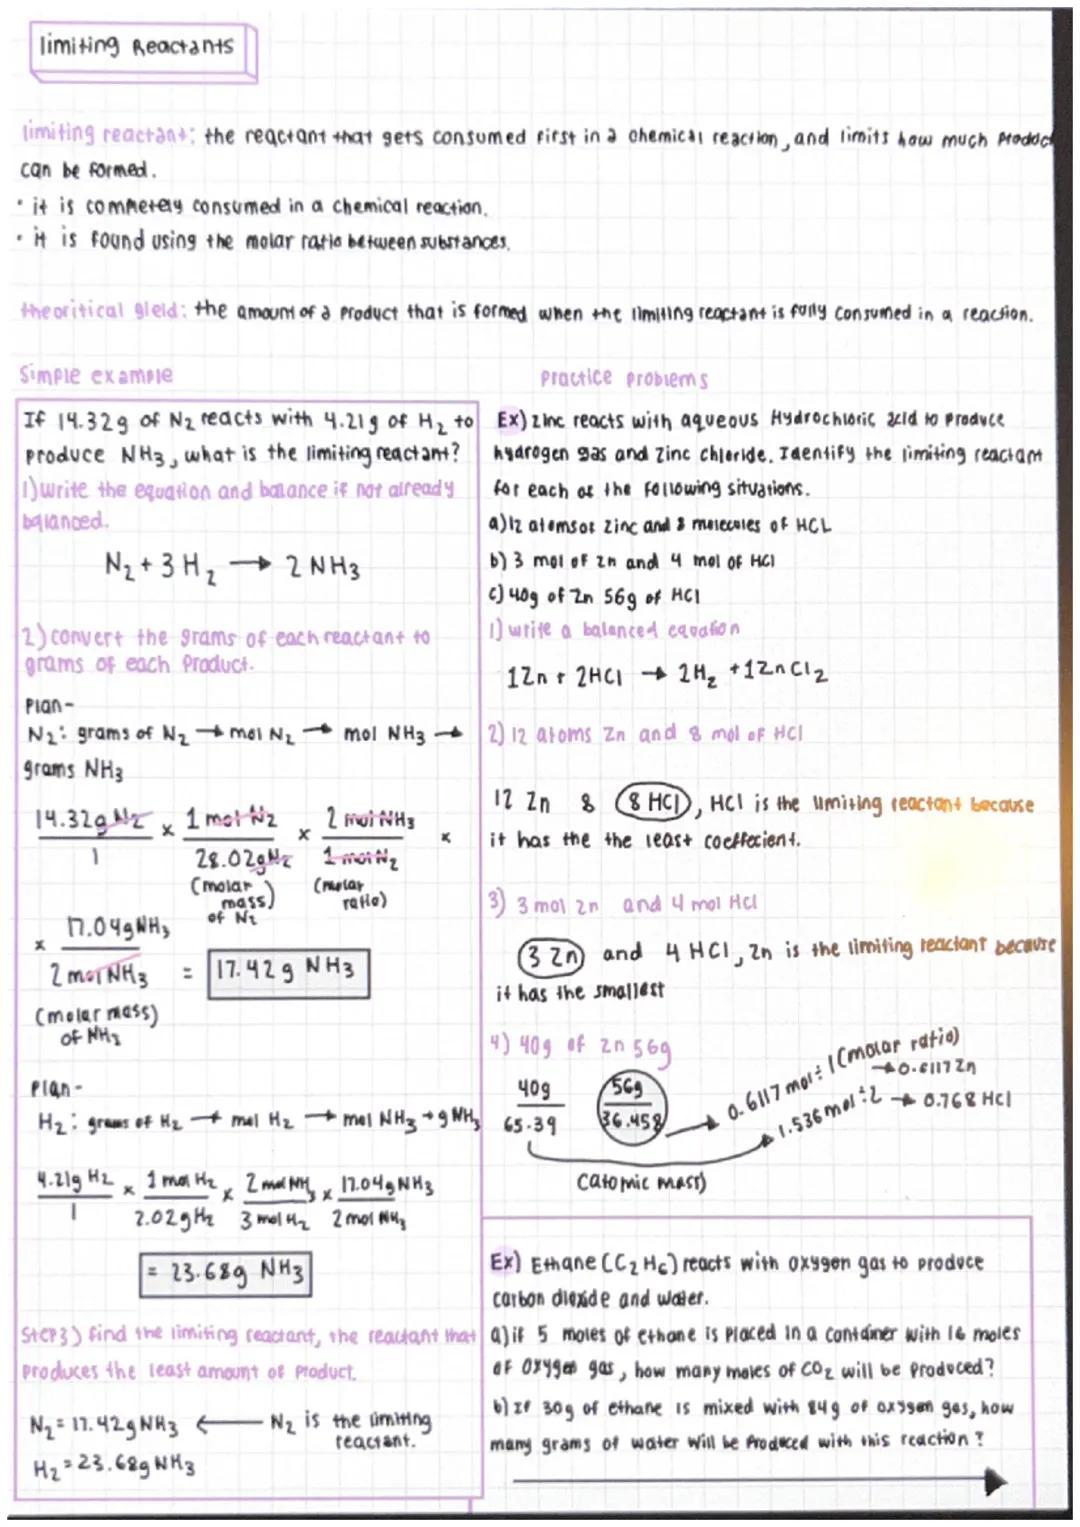 limiting Reactants
limiting reactant: the reactant that gets consumed first in a chemical reaction, and limits how much product
can be formed.
• it is completely consumed in a chemical reaction.
• it is found using the molar ratio between substances.
theoritical yield: the amount of a product that is formed when the limiting reactant is fully consumed in a reaction.
Simple example
If 14.32g of N2 reacts with 4.21g of H2 to
produce NH3, what is the limiting reactant?
1) write the equation and balance if not already
balanced.
N2 + 3H2 → 2NH3
2) convert the grams of each reactant to
grams of each product.
Plan-
N2: grams of N2 → mol N2 → mol NH3 →
grams NH3
14.32g N2 × 1 mol N2 × 2 mol NH3 ×
1 28.02g N2 1 mol N2
(molar mass) of N2 (molar ratio)
× 17.04g NH3
2 mol NH3 = 17.42g NH3
(molar mass)
of NH3
Plan-
H2: grams of H2 → mol H2 → mol NH3 → g NH3
4.21g H2 × 1 mol H2 × 2 mol NH3 × 17.04g NH3
1 2.02g H2 3 mol H2 2 mol NH3
= 23.68g NH3
Step 3) find the limiting reactant, the reactant that
produces the least amount of product.
N2 = 17.42g NH3 ← N2 is the limiting
reactant.
H2 = 23.68g NH3
Practice problems
Ex) zinc reacts with aqueous Hydrochloric acid to produce
hydrogen gas and zinc chloride. Identify the limiting reactant
for each of the following situations.
a) 12 atoms of zinc and 8 molecules of HCL
b) 3 mol of Zn and 4 mol of HCl
c) 40g of Zn 56g of HCl
1) write a balanced equation
1Zn + 2HCl → 2H2 + 1ZnCl2
2) 12 atoms Zn and 8 mol of HCl
12 Zn & 8 HCl, HCl is the limiting reactant because
it has the the least coeffecient.
3) 3 mol Zn and 4 mol HCl
3 Zn and 4 HCl, Zn is the limiting reactant because
it has the smallest
4) 40g of Zn 56g
40g 56g 0.6117 mol ÷ 1 (molar ratio)
→ 0.6117 Zn
65.39 36.458 1.536 mol ÷ 2 → 0.768 HCl
(atomic mass)
Ex) Ethane (C2H6) reacts with oxygen gas to produce
carbon dioxide and water.
a) if 5 moles of ethane is placed in a container with 16 moles
of oxygen gas, how many moles of CO2 will be produced?
b) If 30g of ethane is mixed with 84g of oxygen gas, how
many grams of water will be produced with this reaction?